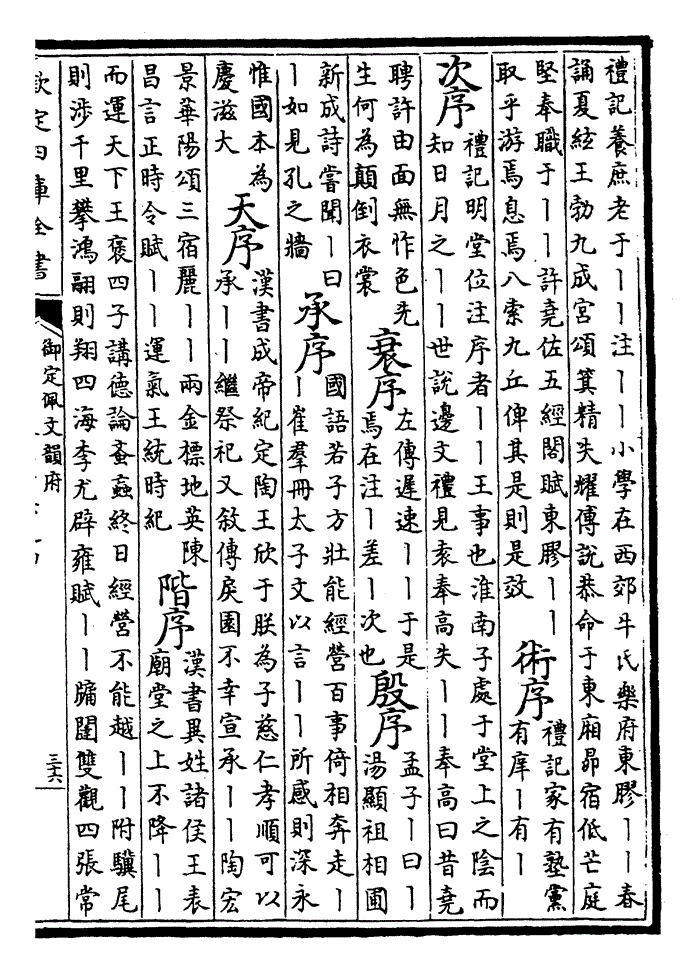 禮記養庶老于丨丨注丨丨小學在西郊牛氏樂府東膠丨丨春
誦夏絃王勃九成宮頌箕精失耀傅說恭命于東廂昴宿低芒庭
堅奉職于丨丨許堯佐五經閣賦東膠丨丨
取乎游焉息焉八索九丘俾其是則是效
術序
禮記家有塾黨
有庠丨有丨
次序
禮記明堂位注序者丨丨王事也淮南子處于堂上之陰而
知日月之丨丨世說邊文禮見袁奉高失丨丨奉高曰昔堯
聘許由面無怍色先
生何為顛倒衣裳
衰序
左傳遲速丨丨于是
焉在注丨差丨次也
殷序
孟子丨曰丨
湯顯祖相圃
新成詩嘗聞丨曰
丨如見孔之牆
承序
國語若子方壯能經營百事倚相奔走丨
丨崔羣冊太子文以言丨丨所感則深永
惟國本為
慶滋大
天序
漢書成帝紀定陶王欣于朕為子慈仁孝順可以
承丨丨繼祭祀又敘傳戾園不幸宣承丨丨陶宏
景華陽頌三宿麗丨丨兩金標地英陳
昌言正時令賦丨丨運氣王統時紀
階序
漢書異姓諸侯王表
廟堂之上不降丨丨
而運天下王褒四子講德論蚉蝱終日經營不能越丨丨附驥尾
則涉千里攀鴻翮則翔四海李尤辟雍賦丨丨牖闥雙觀四張常
欽定四庫全書
御定佩文韻府
三六